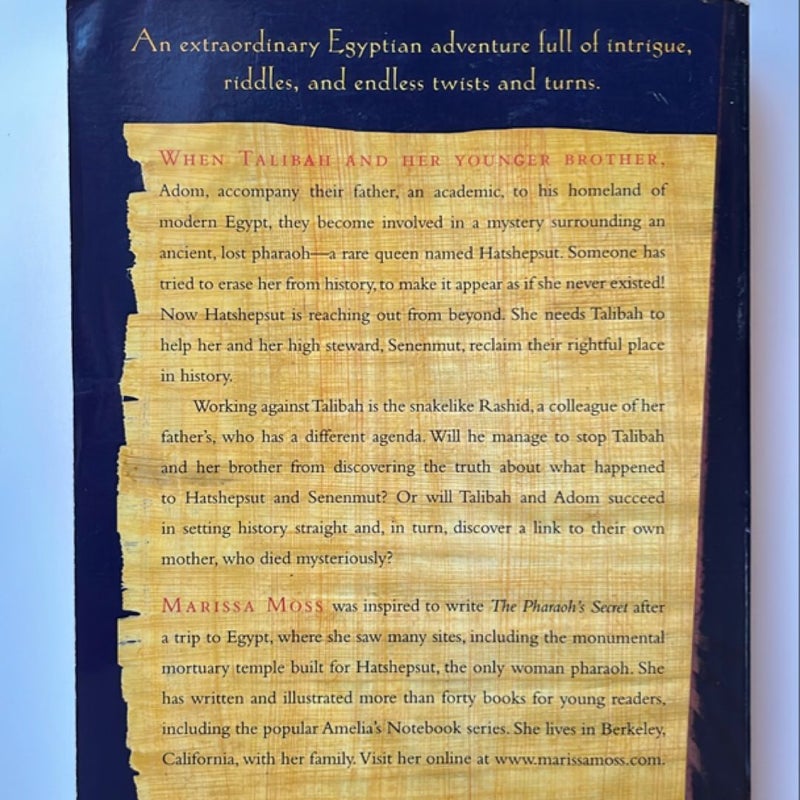 An extraordinary Egyptian adventure full of intrigue,
riddles, and endless twists and turns.
WHEN TALIBAH AND HER YOUNGER BROTHER,
Adom, accompany their father, an academic, to his homeland of
modern Egypt, they become involved in a mystery surrounding an
ancient, lost pharaoh—a rare queen named Hatshepsut. Someone has
tried to erase her from history, to make it appear as if she never existed!
Now Hatshepsut is reaching out from beyond. She needs Talibah to
help her and her high steward, Senenmut, reclaim their rightful place
in history.
Working against Talibah is the snakelike Rashid, a colleague of her
father's, who has a different agenda. Will he manage to stop Talibah
and her brother from discovering the truth about what happened
to Hatshepsut and Senenmut? Or will Talibah and Adom succeed
in setting history straight and, in turn, discover a link to their own
mother, who died mysteriously?
MARISSA MOSS was inspired to write The Pharaoh's Secret after
a trip to Egypt, where she saw many sites, including the monumental
mortuary temple built for Hatshepsut, the only woman pharaoh. She
has written and illustrated more than forty books for young readers,
including the popular Amelia's Notebook series. She lives in Berkeley,
California, with her family. Visit her online at www.marissamoss.com.